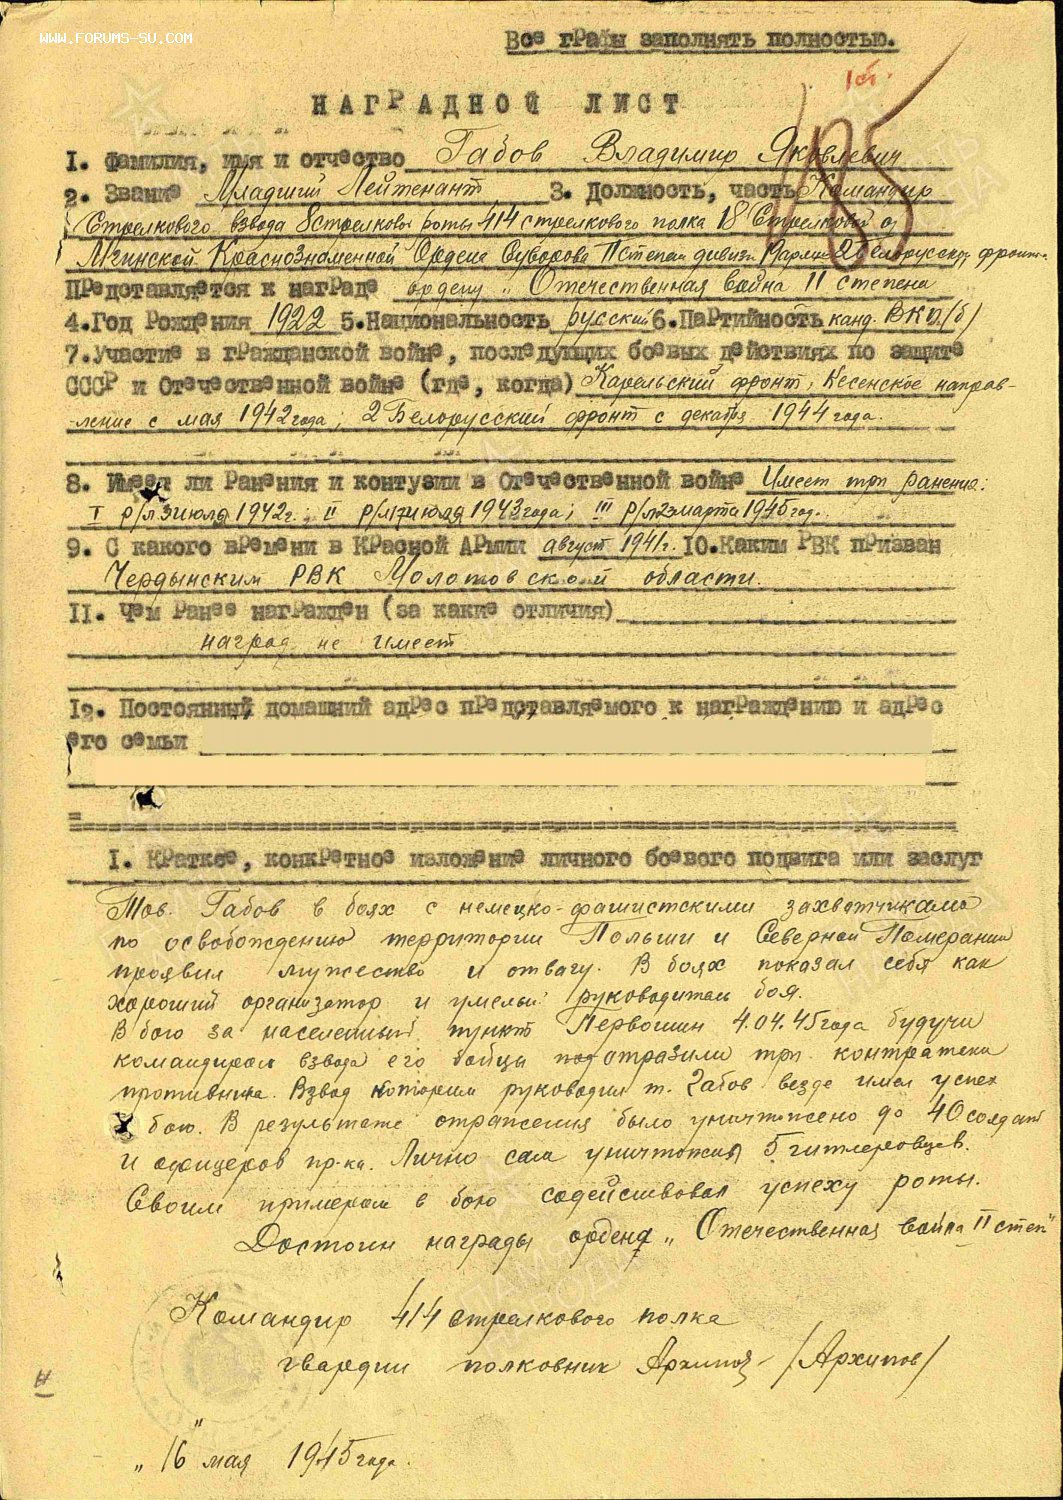 WWW.FORUMS-SU.COM
Все графы заполнять полностью.
НАГРАДНОЙ ЛИСТ
1. Фамилия, имя и отчество Габов Владимир Яковлевич
2. Звание Младший Лейтенант 3. Должность, часть Командир
Стрелкового взвода 8 стрелковой роты 414 стрелкового полка 18 Стрелковой
Мгинской Краснознаменной Ордена Суворова II степени дивизии 19 армии 2 Белорусского фронта
Представляется к награде ордену „Отечественная война II степени
4. Год Рождения 1922 5. Национальность русский 6. Партийность канд. ВКП(б)
7. Участие в гражданской войне, последующих боевых действиях по защите
СССР и Отечественной войне (где, когда) Карельский фронт, Кесенское направ-
ление с мая 1942 года; 2 Белорусский фронт с декабря 1944 года.
8. Имеет ли Ранения и контузии в Отечественной войне Имеет три ранения:
I р/л 3 июля 1942 г.; II р/л 17 июля 1943 года; III р/л 2 марта 1945 год.
9. С какого времени в Красной Армии август 1941 г. 10. Каким РВК призван
Чердынским РВК Молотовской области.
11. Чем Ранее награжден (за какие отличия)
наград не имеет
12. Постоянный домашний адрес представляемого к награждению и адрес
его семьи
I. Краткое, конкретное изложение личного боевого подвига или заслуг
Тов. Габов в боях с немецко-фашистскими захватчиками
по освобождению территории Польши и Северной Померании
проявил мужество и отвагу. В боях показал себя как
хороший организатор и умелый руководитель боя.
В бою за населенный пункт Первошин 4.04.45 года будучи
командиром взвода его бойцы отразили три контратаки
противника. Взвод которым руководил т. Габов везде имел успех
в бою. В результате отражения было уничтожено до 40 солдат
и офицеров пр-ка. Лично сам уничтожил 5 гитлеровцев.
Своим примером в бою содействовал успеху роты.
Достоин награды ордена „Отечественная война II степ"
Командир 414 стрелкового полка
гвардии полковник Архипов /Архипов/
„16" мая 1945 года.